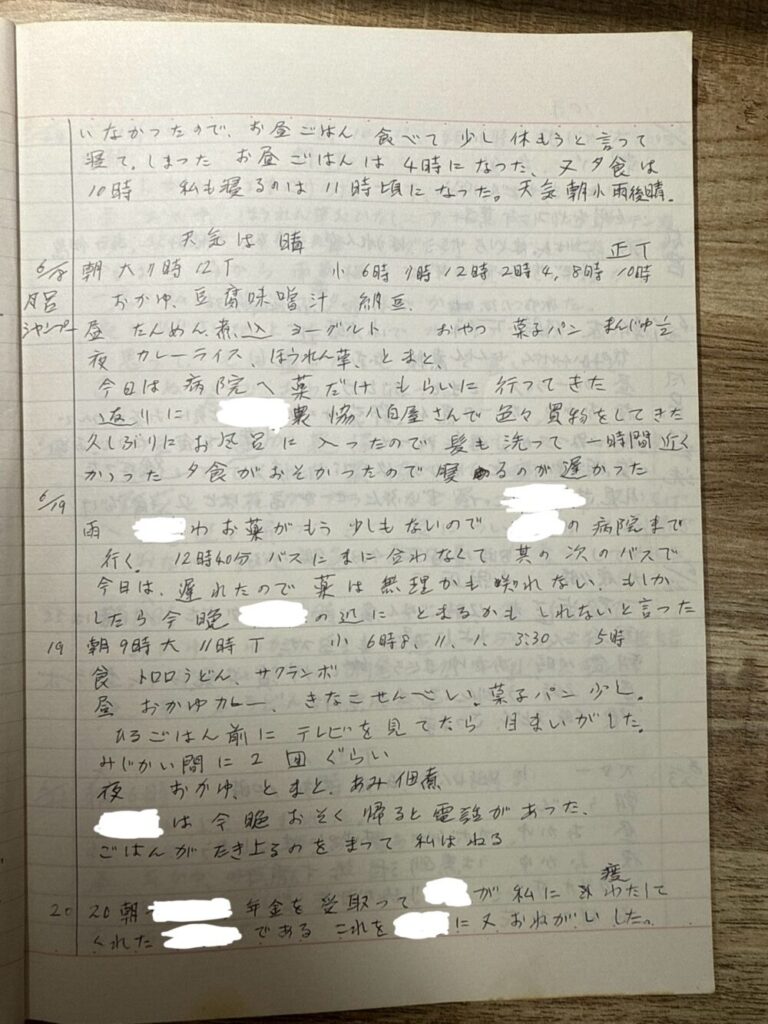 いなかったので、お昼ごはん 食べて 少し休もうと言って
寝て、しまった お昼ごはんは 4時になった、又夕食は
10時 私も寝るのは 11時頃になった。天気朝小雨後晴。
天気は 晴
正T
6/18 朝 大 7時 12T 小 6時 9時 12時 2時 4, 8時 10時
風呂 おかゆ、豆腐味噌汁 納豆.
シャンプー 昼 たんめん、煮込 ヨーグルト おやつ 菓子パン まんじゅ1/2
夜 カレーライス、ほうれん草、とまと、
今日は病院へ薬だけもらいに行ってきた
返りに 農協八百屋さんで色々買物をしてきた
久しぶりにお風呂に入ったので髪も洗って一時間近く
かゝった 夕食がおそかったので寝るのが遅かった
6/19
雨 わお薬がもう少しもないので の病院まで
行く。 12時40分バスにまに合わなくて其の次のバスで
今日は、遅れたので薬は無理かも知れない、もしか
したら今晩 の辺にとまるかもしれないと言った
19 朝9時大 11時T 小 6時8、11、1、3:30 5時
食 トロロうどん、サクランボ
昼 おかゆカレー、きなこせんべい、菓子パン少し。
ひるごはん前にテレビを見てたら目まいがした。
みじかい間に2回ぐらい
夜 おかゆ、とまと、あみ佃煮
は今晩おそく帰ると電話があった、
ごはんがたき上るのをまって私はねる
20 20朝 年金を受取って が私に わたして
くれた である これを に又おねがいした。